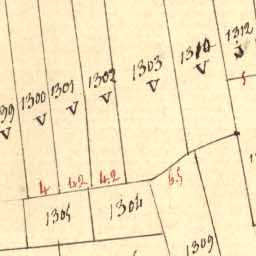 1312
V
1310
V
1303
V
1302
V
1301
V
1300
V
99
V
5
4
4.2
4.2
6.5
1305
1304
1309